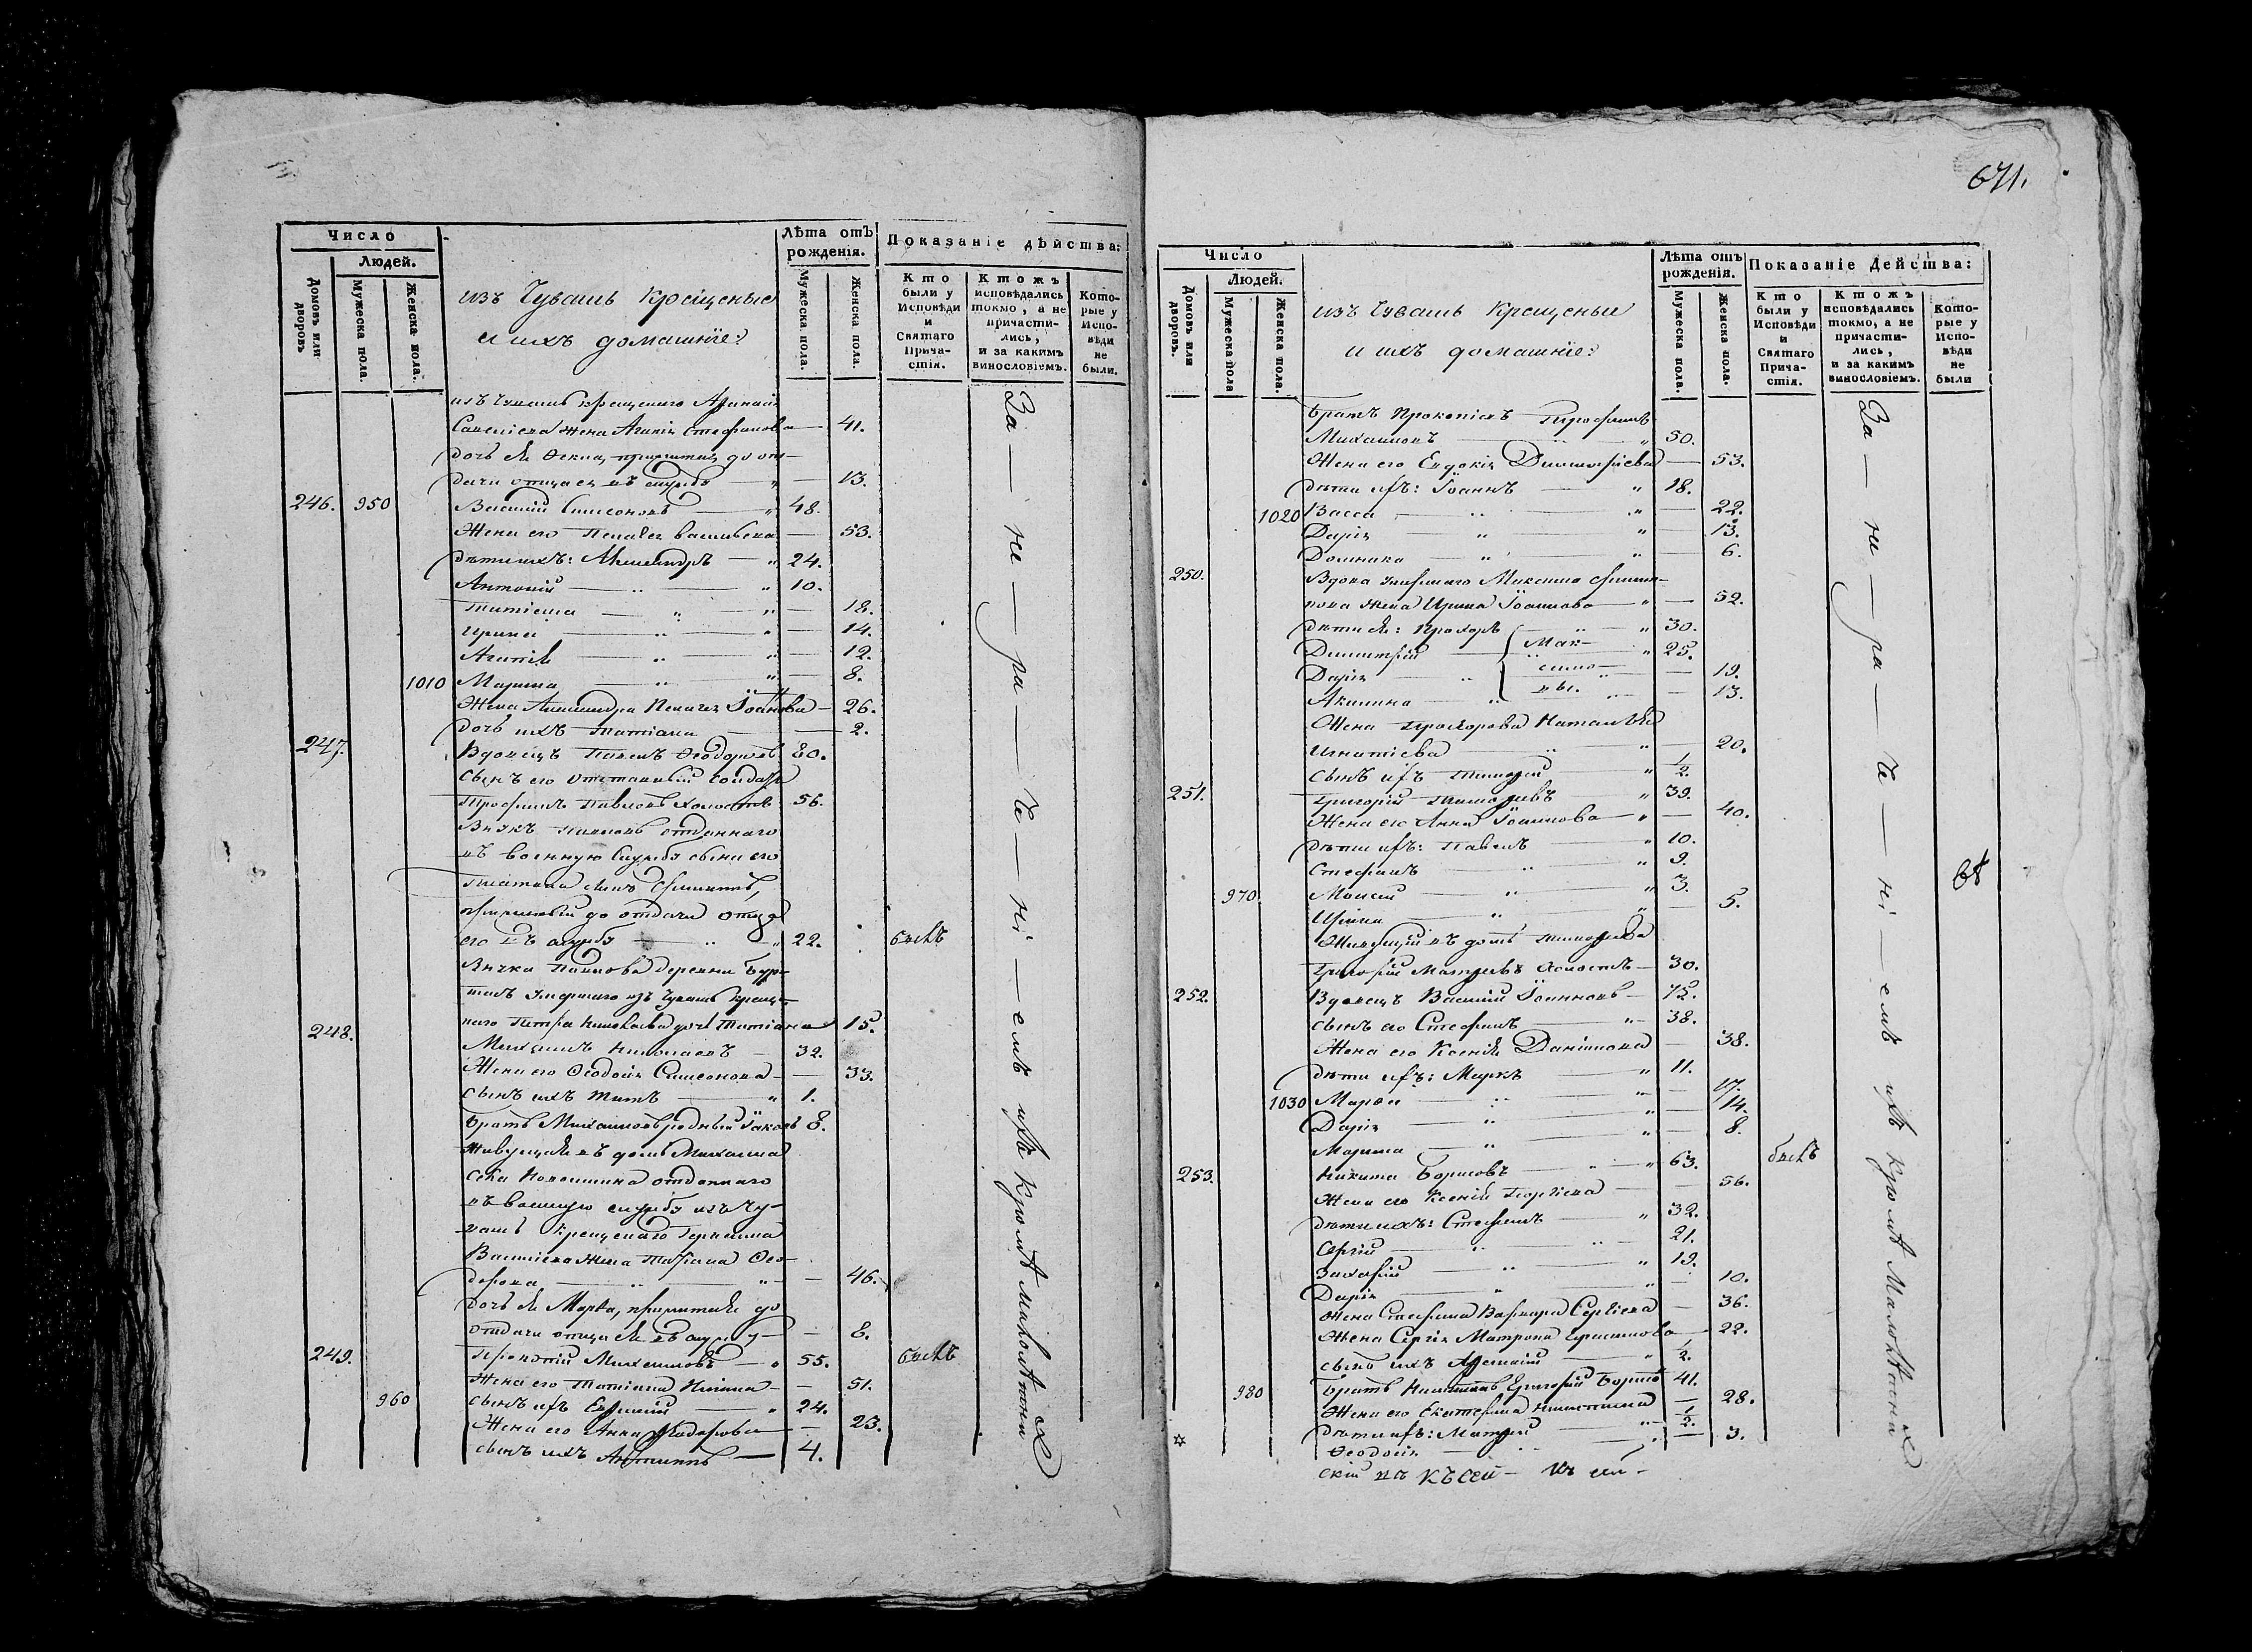 Число
Людей.
Домовъ или дворовъ
Мужеска пола.
Женска пола.
изъ Чувашъ Крещеные
и ихъ домашніе:
Лѣта отъ рожденія.
Мужеска пола.
Женска пола.
Показаніе дѣйства:
Кто были у Исповѣди и Святаго Прича-стія.
Ктожъ исповѣдались токмо, а не причасти-лись, и за какимъ винословіемъ.
Кото-рые у Испо-вѣди не были.
изъ Чувашъ крещенаго
жена Агапія Стефанова — 41.
дочь ея
дачи отца ея въ службу — 13.
246. 950 Василій Симеоновъ — 48.
Жена его Пелагея Васильева — 53.
дѣти ихъ: Александръ — 24.
Антоній — 10.
— 18.
Ирина — 14.
Агапія — 12.
1010 Марина — 8.
Жена Александра Пелагея Іоаннова — 26.
дочь ихъ Татіана — 2.
247. Вдовецъ Павелъ Ѳеодоровъ 80.
сынъ его отставный солдатъ
Трофимъ Павловъ холостъ 56.
Внукъ Павловъ отданнаго
въ военную службу сына его
сынъ Филиппъ,
до отдачи отца
его въ службу — 22. былъ
Внучка Павлова деревни Бур-
умершаго изъ Чувашъ креще-
наго Петра Николаева дочь Татіана 15.
248. Михаилъ Николаевъ — 32.
Жена его Ѳеодосія Симеонова — 33.
сынъ ихъ Титъ — 1.
Братъ Михаиловъ родный Іаковъ 8.
Живущая въ домѣ Михаила
отданнаго
въ военную службу изъ Чу-
вашъ крещенаго
Васильева жена Ѳео-
дорова — 46.
дочь ея Марѳа, прижитая до
отдачи отца ея въ службу — 8.
249. Прокопій Михаиловъ — 55. былъ
Жена его Татіана — 51.
960 сынъ ихъ Евфимій — 24.
Жена его Анна Ѳеодорова — 23.
сынъ ихъ Антипъ — 4.
За — не — ра — че — ні — емъ ихъ кромѣ малолѣтныхъ
671.
Число
Людей.
Домовъ или дворовъ.
Мужеска пола
Женска пола.
изъ Чувашъ Крещеные
и ихъ домашніе:
Лѣта отъ рожденія.
Мужеска пола.
Женска пола.
Показаніе Действа:
Кто были у Исповѣди и Святаго Прича-стія.
Ктожъ исповѣдались токмо, а не причасти-лись, и за какимъ винословіемъ.
Кото-рые у Испо-вѣди не были
Братъ Прокопіевъ Трофимъ
Михаиловъ — 50.
Жена его Евдокія Димитріева — 53.
дѣти ихъ: Іоаннъ — 18.
1020 Васса — 22.
Дарія — 13.
Домника — 6.
250. Вдова умершаго Максима Филип-
пова жена Ирина Іоаннова — 52.
дѣти ея: Прохоръ — 30.
Димитрій — Мак- 25.
Дарія — симо- 19.
Акилина — вы. 13.
Жена Прохорова Наталья
Игнатіева — 20.
сынъ ихъ Тимофей — 1/2.
251. Григорій Тимофеевъ — 39.
Жена его Анна Іоаннова — 40.
дѣти ихъ: Павелъ — 10.
Стефанъ — 9.
970 Моисей — 3.
Ирина — 5.
Живущій въ домѣ Тимофеева
Григорій Матфеевъ холостъ — 30.
252. Вдовецъ Василій Іоанновъ — 75.
сынъ его Стефанъ — 38.
Жена его Ксенія Даніилова — 38.
дѣти ихъ: Маркъ — 11.
1030 Марѳа — 17.
Дарія — 14.
Марина — 8.
253. Никита Борисовъ — 63. былъ
Жена его Ксенія Георгіева — 56.
дѣти ихъ: Стефанъ — 32.
Сергій — 21.
Захарій — 19.
Дарія — 10.
Жена Стефана Варвара Сергіева — 36.
Жена Сергія Матрона Герасимова — 22.
сынъ ихъ — 1/2.
980 Братъ Никитинъ Григорій Борисовъ 41.
Жена его Екатерина — 28.
дѣти ихъ: Матфей — 1/2.
Ѳеодосія — 3.
За — не — ра — че — ні — емъ ихъ кромѣ малолѣтныхъ